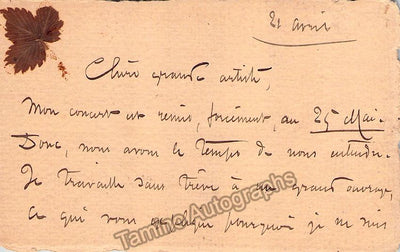 21 avril
Chère grande artiste,
Mon concert est remis, forcément, au 25 Mai.
Donc, nous avons le temps de nous entendre.
Je travaille sans trêve à un grand ouvrage
ce qui vous explique pourquoi je ne suis
Tamino Autographs